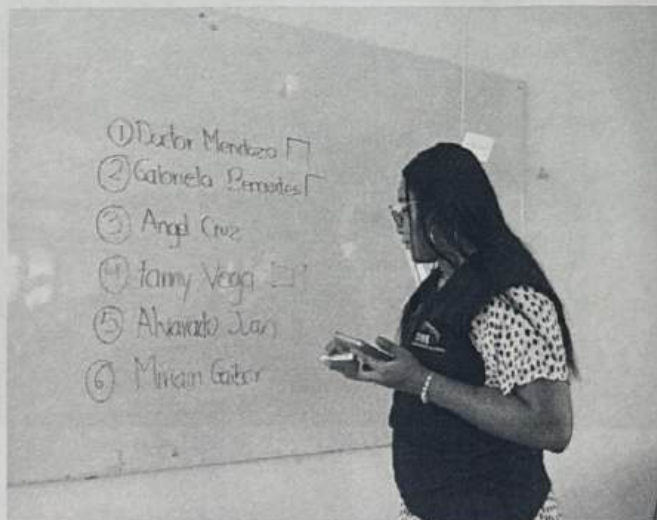 ① Doctor Mendoza
② Gabriela
③ Angel Cruz
④ fanny Vega
⑤ Alvarado Juan
⑥ Miriam Gaibor